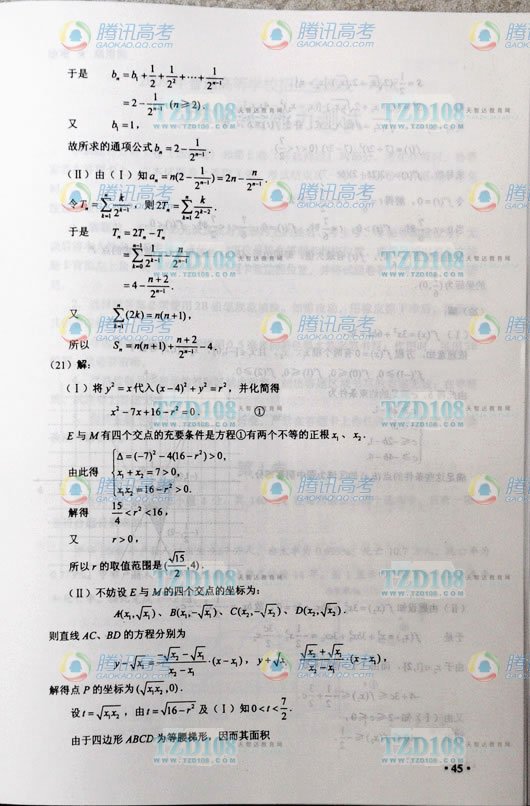 于是 bₙ = b₁ + 1/2 + 1/2² + ⋯ + 1/2ⁿ⁻¹
= 2 − 1/2ⁿ⁻¹ (n ≥ 2).
又 b₁ = 1，
故所求的通项公式 bₙ = 2 − 1/2ⁿ⁻¹.
(Ⅱ) 由(Ⅰ)知 aₙ = n(2 − 1/2ⁿ⁻¹) = 2n − n/2ⁿ⁻¹.
令 Tₙ = ∑ₖ₌₁ⁿ k/2ᵏ⁻¹，则 2Tₙ = ∑ₖ₌₁ⁿ k/2ᵏ⁻².
于是 Tₙ = 2Tₙ − Tₙ
= ∑ₖ₌₀ⁿ⁻¹ 1/2ᵏ⁻¹ − n/2ⁿ⁻¹
= 4 − (n+2)/2ⁿ⁻¹.
又 ∑ₖ₌₁ⁿ (2k) = n(n+1)，
所以 Sₙ = n(n+1) + (n+2)/2ⁿ⁻¹ − 4.
(21) 解：
(Ⅰ) 将 y² = x 代入 (x−4)² + y² = r²，并化简得
x² − 7x + 16 − r² = 0. ①
E 与 M 有四个交点的充要条件是方程①有两个不等的正根 x₁、x₂.
由此得 { Δ = (−7)² − 4(16 − r²) > 0,
x₁ + x₂ = 7 > 0,
x₁x₂ = 16 − r² > 0.
解得 15/4 < r² < 16，
又 r > 0，
所以 r 的取值范围是 (√15/2, 4).
(Ⅱ) 不妨设 E 与 M 的四个交点的坐标为：
A(x₁,√x₁)、B(x₁,−√x₁)、C(x₂,−√x₂)、D(x₂,√x₂).
则直线 AC、BD 的方程分别为
y − √x₁ = (−√x₂ − √x₁)/(x₂ − x₁) · (x − x₁)， y + √x₁ (√x₂ + √x₁)/(x₂ − x₁) (x − x₁)，
解得点 P 的坐标为 (√x₁x₂, 0).
设 t = √x₁x₂，由 t = √16 − r² 及(Ⅰ)知 0 < t < 7/2.
由于四边形 ABCD 为等腰梯形，因而其面积
· 45 ·
腾讯高考
GAOKAO.QQ.COM
TZD108
天智达教育网
WWW.TZD108.COM